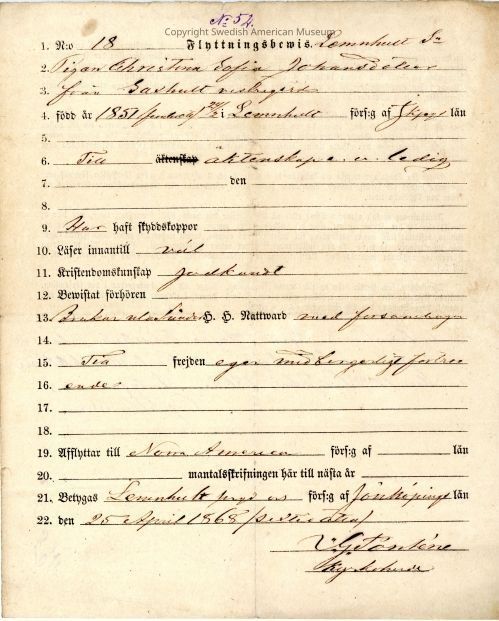 No 52.
Copyright Swedish American Museum
1. N:o 18 Flyttningsbewis Lemnhult Sn
2. Pigan Christina Sofia Johansdotter
3. från
4. född år 1851 i Lemnhult förs:g af Jkpgs län
5.
6. Till äktenskap äktenskap ledig
7. den
8.
9. Har haft skyddskoppor
10. Läser innantill väl
11. Kristendomskunskap godkändt
12. Bewistat förhören
13. Brukar H. H. Nattward med församlingen
14.
15. Till frejden eger medborgerligt förtroe
16. ende
17.
18.
19. Afflyttar till Norra America förs:g af län
20. mantalsskrifningen här till nästa år
21. Betygas Lemnhult förs:g af Jönköpings län
22. den 25 April 1868